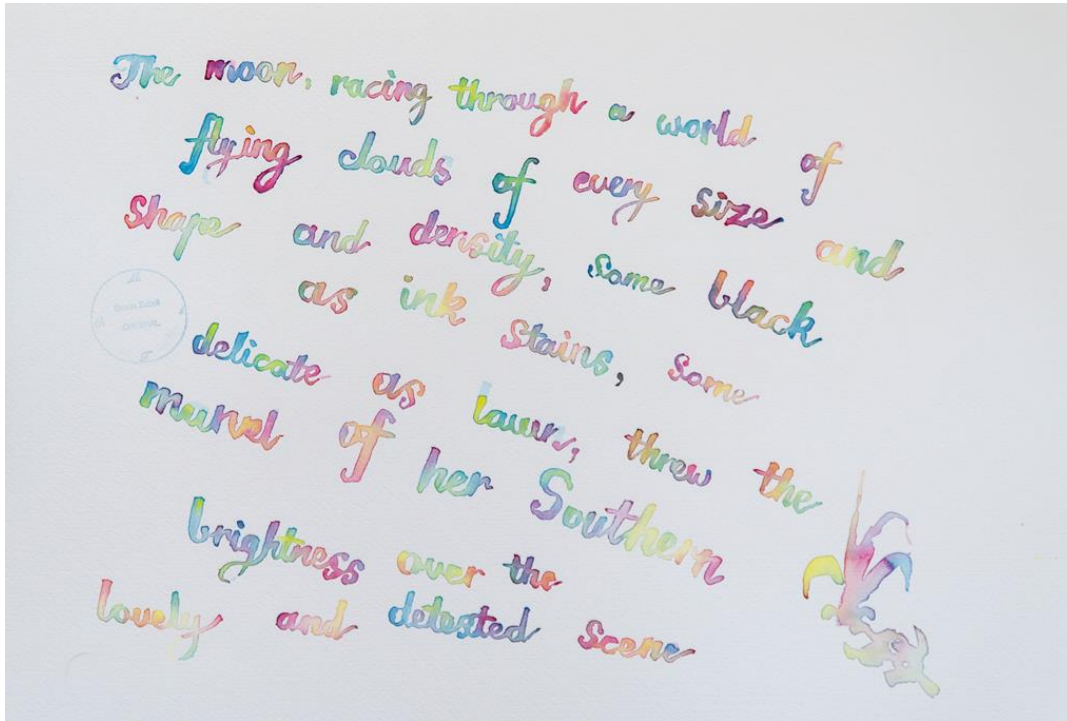 The moon, racing through a world of
flying clouds of every size and
shape and density, some black
as ink stains, some
delicate as lawn, threw the
marvel of her Southern
brightness over the
lovely and detested scene